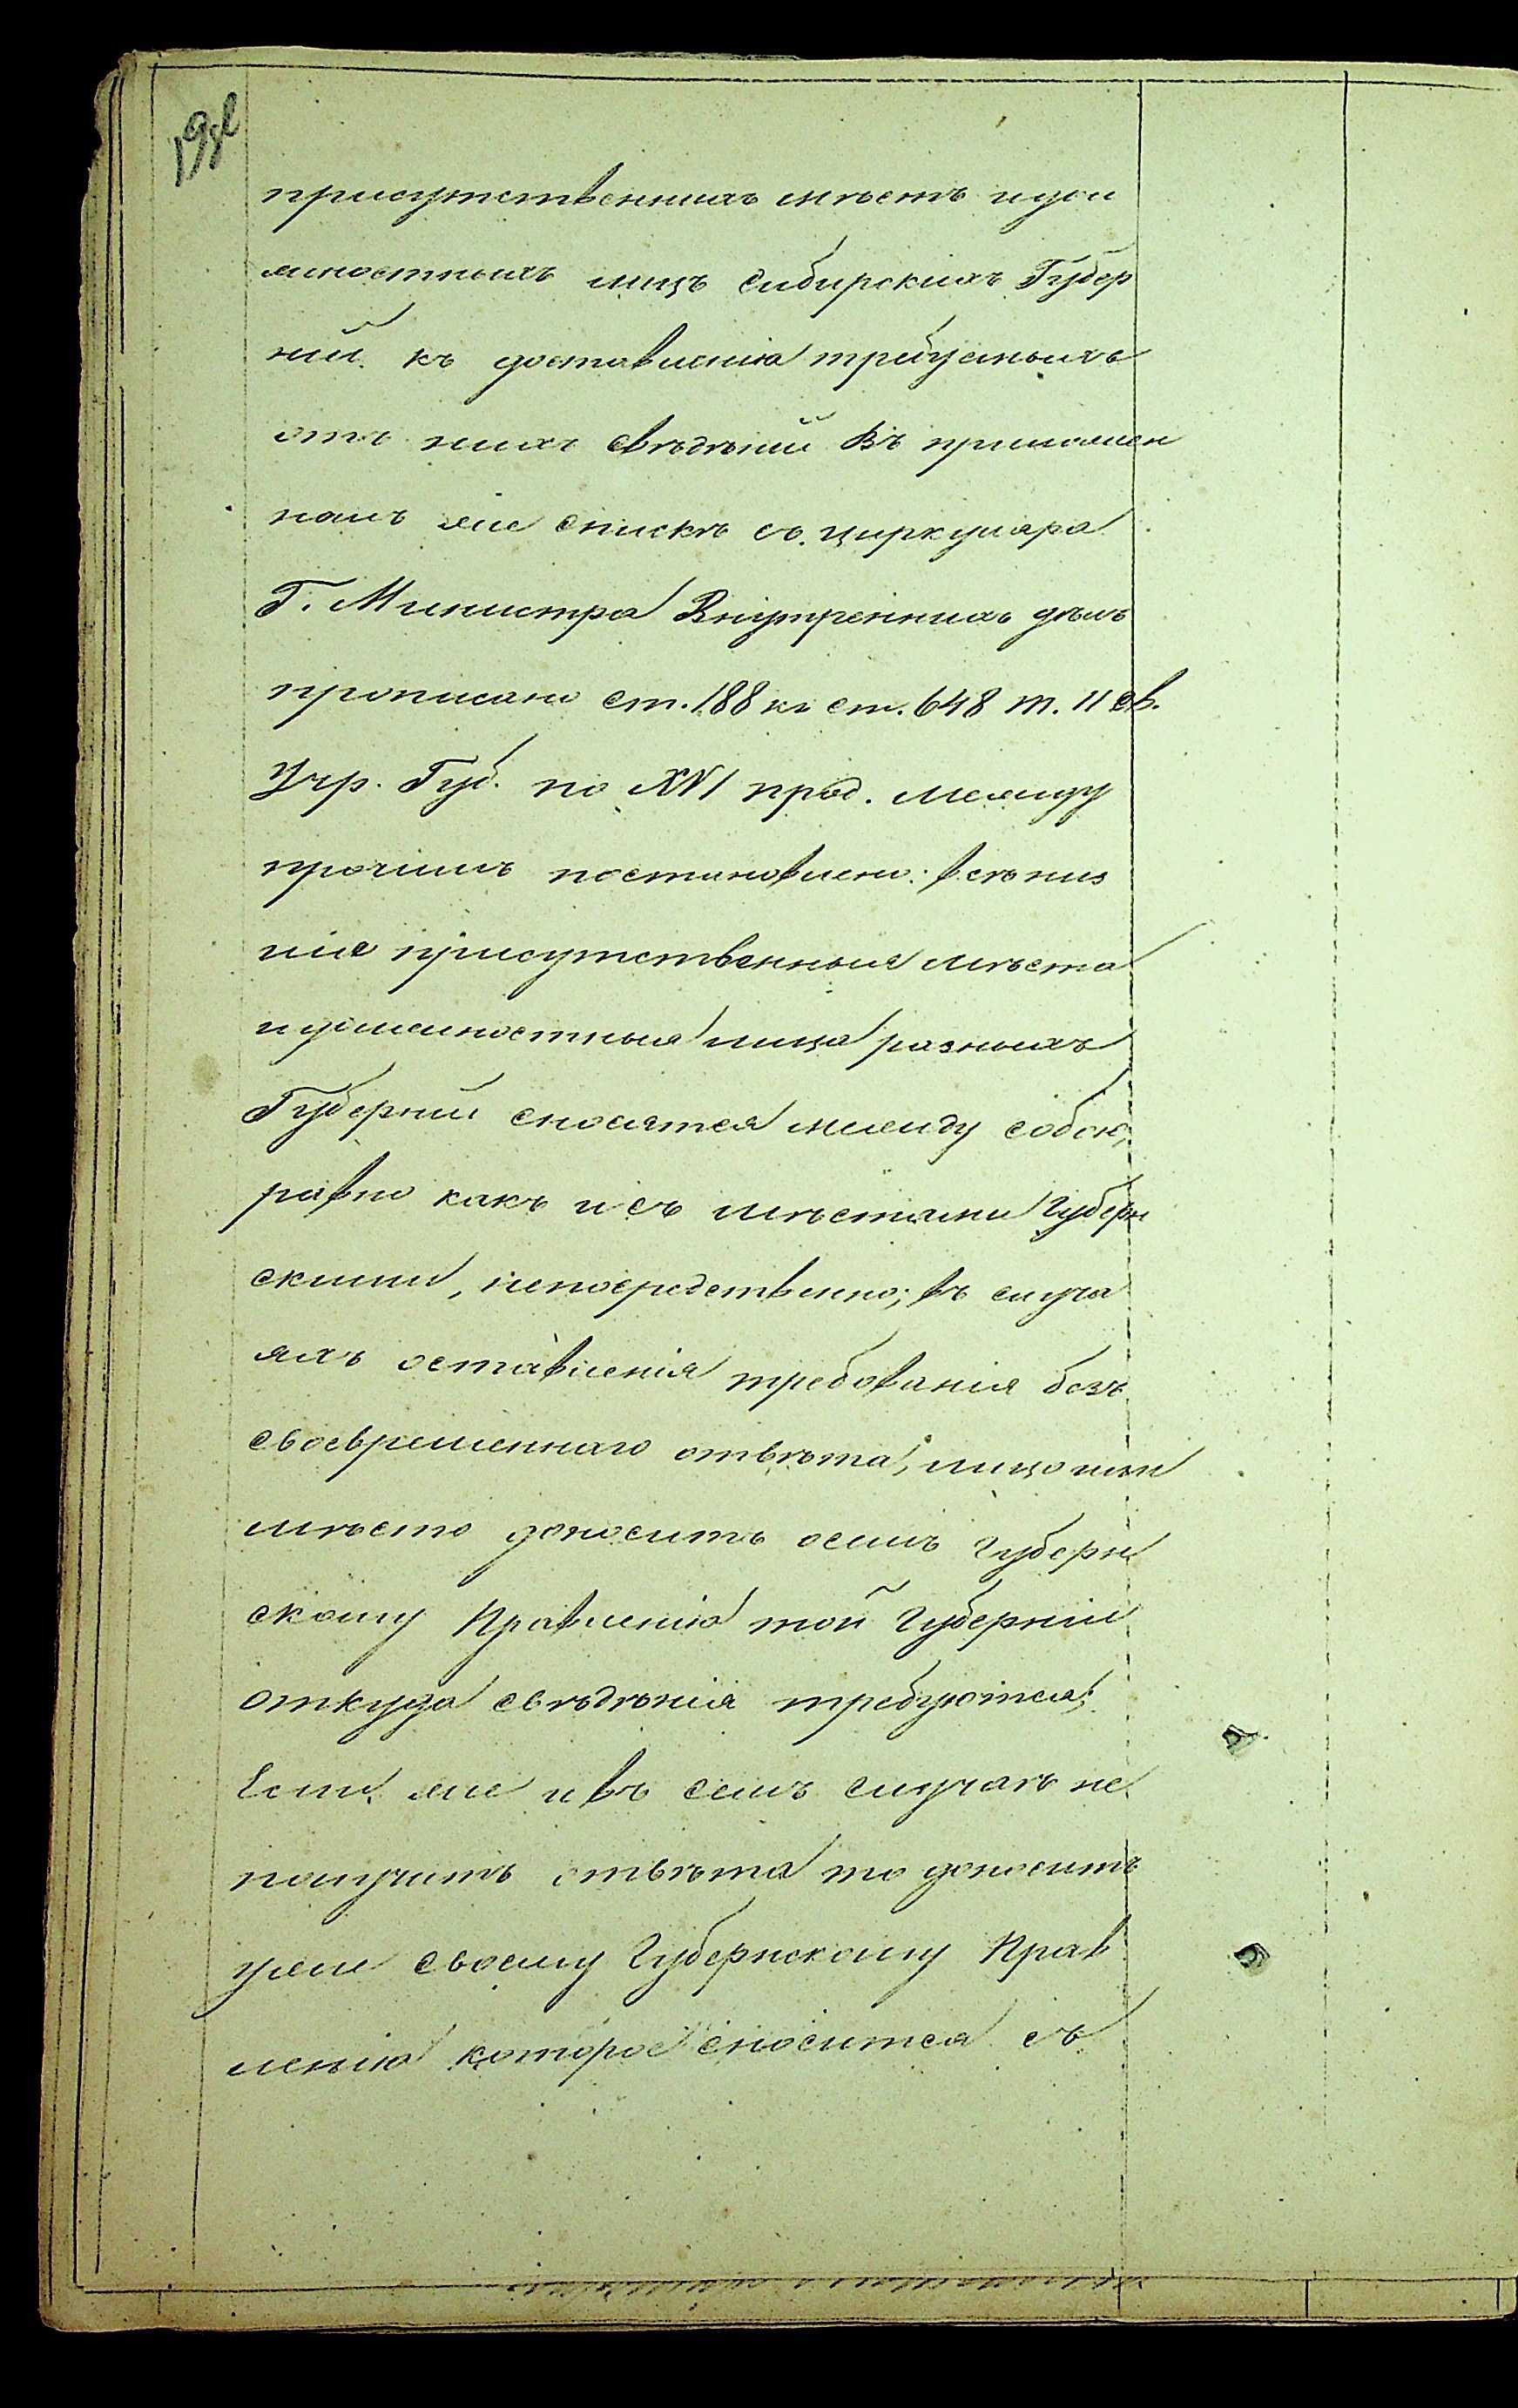 присутственныхъ мѣстъ и дол
жностныхъ лицъ Сибирскихъ Губер
ній къ доставленію требуемыхъ
отъ нихъ свѣдѣній Въ приложен
номъ же спискѣ съ циркуляра
Г. Министра Внутреннихъ дѣлъ
прописано ст. 188 къ ст. 648 т. II св.
Учр. Губ. по XVI прод. между
прочимъ постановлено: всѣ низ
шія присутственныя мѣста
и должностныя лица разныхъ
Губерній сносятся между собою,
равно какъ и съ мѣстами Губерн
скими, непосредственно; въ случа
яхъ оставленія требованія безъ
своевременнаго отвѣта, лицо или
мѣсто доноситъ о семъ Губерн
скому Правленію той Губерніи
откуда свѣдѣнія требуются;
Если же и въ семъ случаѣ не
получитъ отвѣта то доноситъ
уже своему Губернскому Прав
ленію которое сносится съ